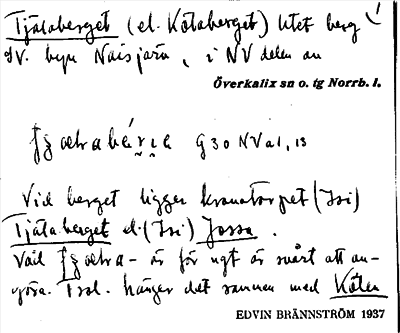 Tjälaberget (el. Kålaberget) litet berg
SV. byn Naisjärv, i NV delen av
Överkalix sn o. tg Norrb. l.
G 30 NV a 1, 13
Vid berget ligger kronotorpet (Isi)
Tjäla berget el. (Isi) Jossa.
Vad - är för ngt är svårt att av-
göra. Trol. hänger det samman med Kålen
EDVIN BRÄNNSTRÖM 1937